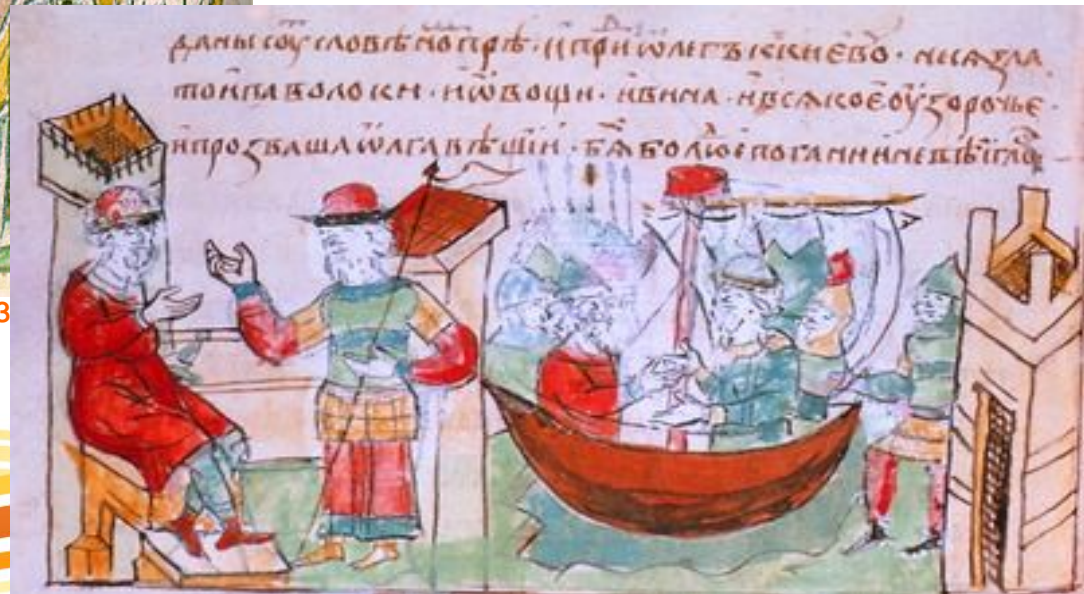 даны соуⷮ словѣноⷨпрѣ · и приⷣ ѿлегъ к киевоⷹ · неса зла
то и паволоки · и ѿвощи · и вина · и всѧкое оузорочье ·
и прозваша ѿлга вѣщїи · бѧⷯ бо людїе погани и невѣигла
3